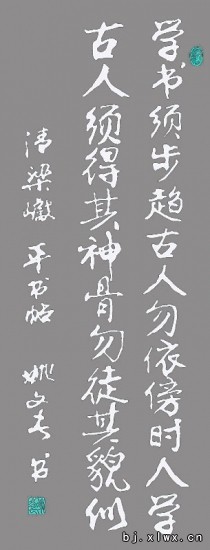 学书须步趋古人勿依傍时人学
古人须得其神骨勿徒其貌似
清梁巘平书帖 姚文春书
bj.xlwx.cn